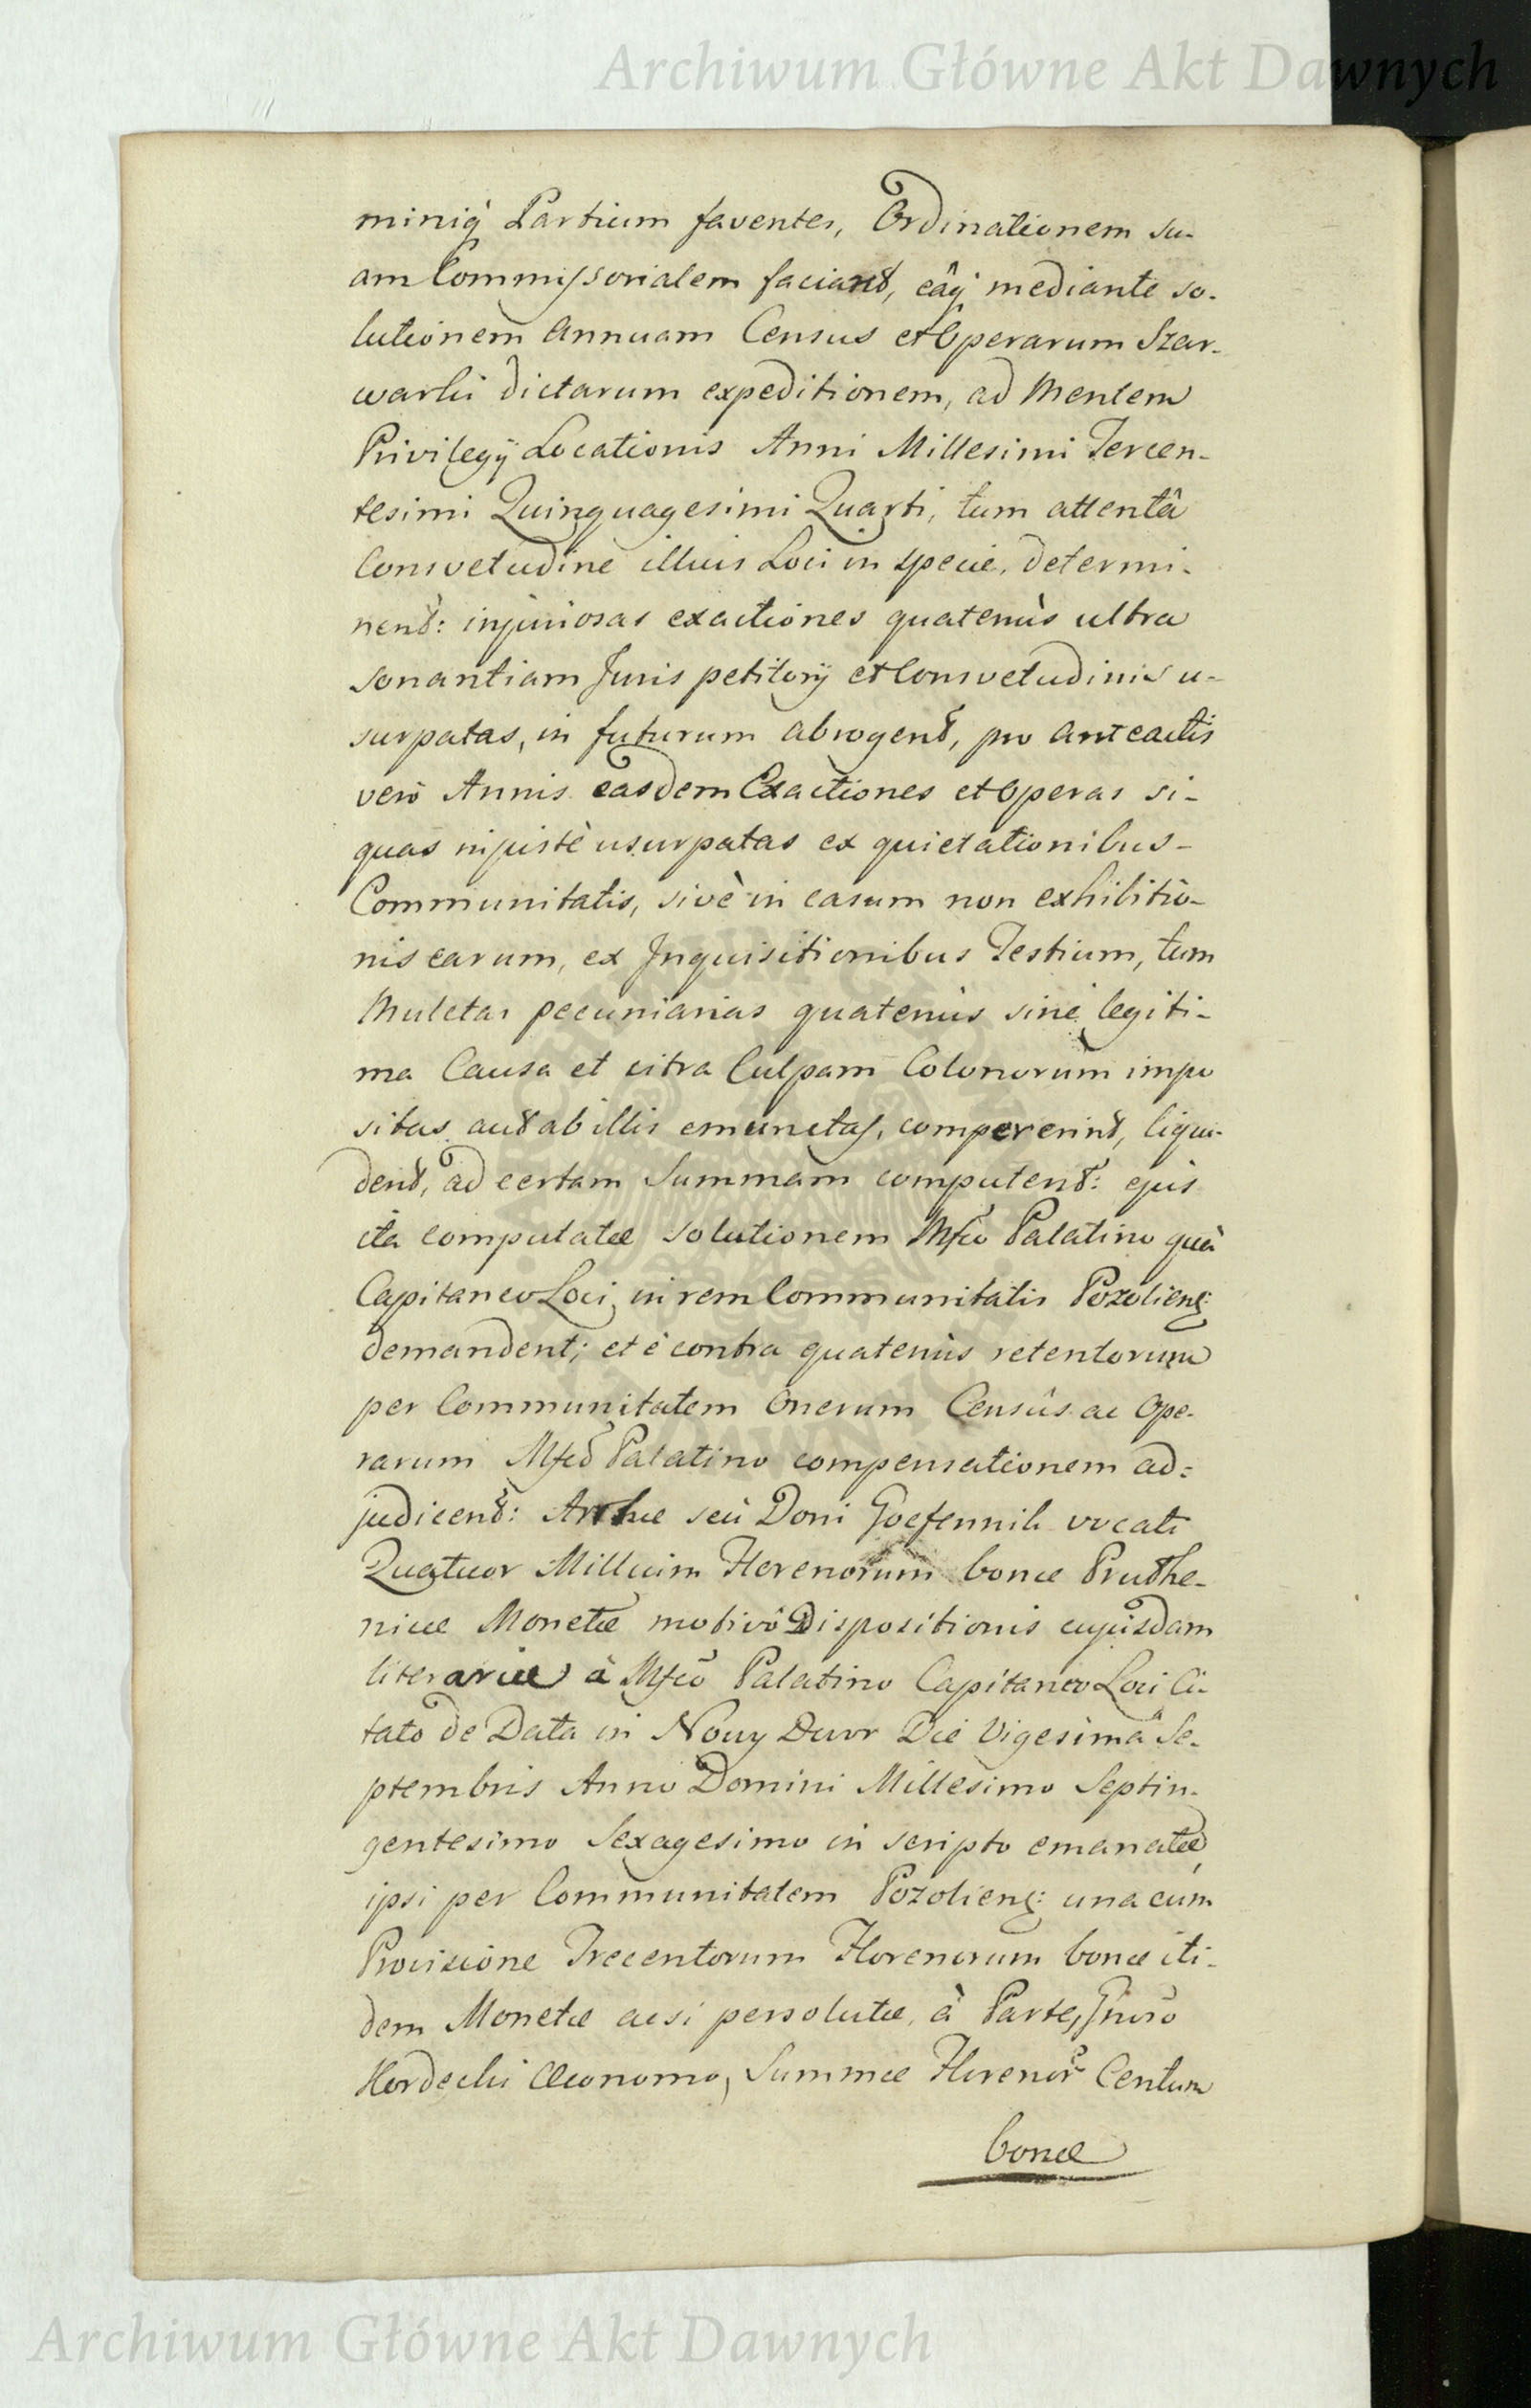 Archiwum Główne Akt Dawnych
miniq̃ Partium faventes, Ordinationem su-
am Commissorialem faciant, eâq̃ mediante so-
lutionem annuam Census et Operarum Szar-
warki dictarum expeditionem, ad Mentem
Privilegÿ Locationis Anni Millesimi Tercen-
tesimi Quinquagesimi Quarti, tum attentâ
Consvetudine illius Loci in specie, determi-
nent: injuriosas exactiones quatenùs ultra
sonantiam Juris petitorÿ et Consvetudinis u-
surpatas, in futurum abrogent, pro anteactis
verò Annis easdem Exactiones et Operas si-
quas injustè usurpatas ex quietationibus-
Communitatis, sivè in casum non exhibitio-
nis earum, ex Inquisitionibus Testium, tum
Mulctas pecuniarias quatenùs sine legiti-
ma Causa et citra Culpam Colonorum impo
sitas aut ab illis emunctas, compererint, liqui-
dent, ad certam Summam computent: ejus
ita computatæ solutionem Mfco Palatino quà
Capitaneo Loci, in rem Communitatis Pozolieng:
demandent; et è contra quatenùs retentorum
per Communitatem Onerum Censûs ac Ope-
rarum Mfco Palatino compensationem ad=
judicent: Arrhæ seù Doni Goefennik vocati
Quatuor Millium Florenorum bonæ Pruthe-
nicæ Monetæ motivô Dispositionis cujusdam
literariæ à Mfco Palatino Capitaneo Loci Ci-
tato de Data in Nowy Dwor Die Vigesimâ Se-
ptembris Anno Domini Millesimo Septin-
gentesimo Sexagesimo in scripto emanatæ,
ipsi per Communitatem Pozolieng: una cum
Provisione Trecentorum Florenorum bonæ iti-
dem Monetæ acsi persolutæ, à Parte, Gnoso
Hordecki Œconomo, Summæ Florenor̃ Centum
bonæ
Archiwum Główne Akt Dawnych